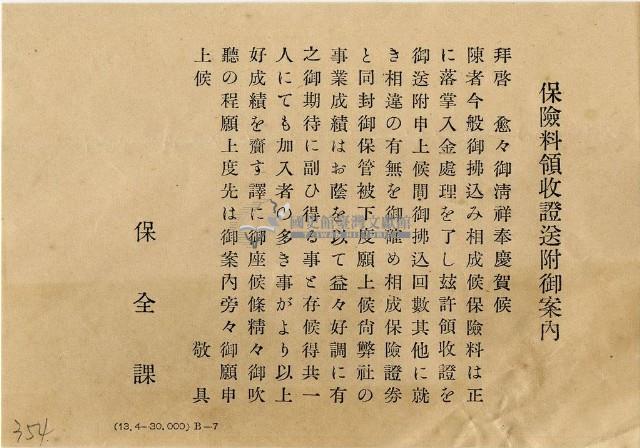 保險料領收證送附御案內
拜啓　愈々御淸祥奉慶賀候
陳者今般御拂込み相成候保險料は正
に落掌入金處理を了し玆許領收證を
御送附申上候間御拂込回數其他に就
き相違の有無を御確め相成保險證券
と同封御保管被下度願上候尙弊社の
事業成績はお蔭を以て益々好調に有
之御期待に副ひ得る事と存候得共一
人にても加入者の多き事がより以上
好成績を齎す譯に御座候條精々御吹
聽の程願上度先は御案內旁々御願申
上候　敬具
保全課
(13.4—30.000) B—7
354
國史館臺灣文獻館